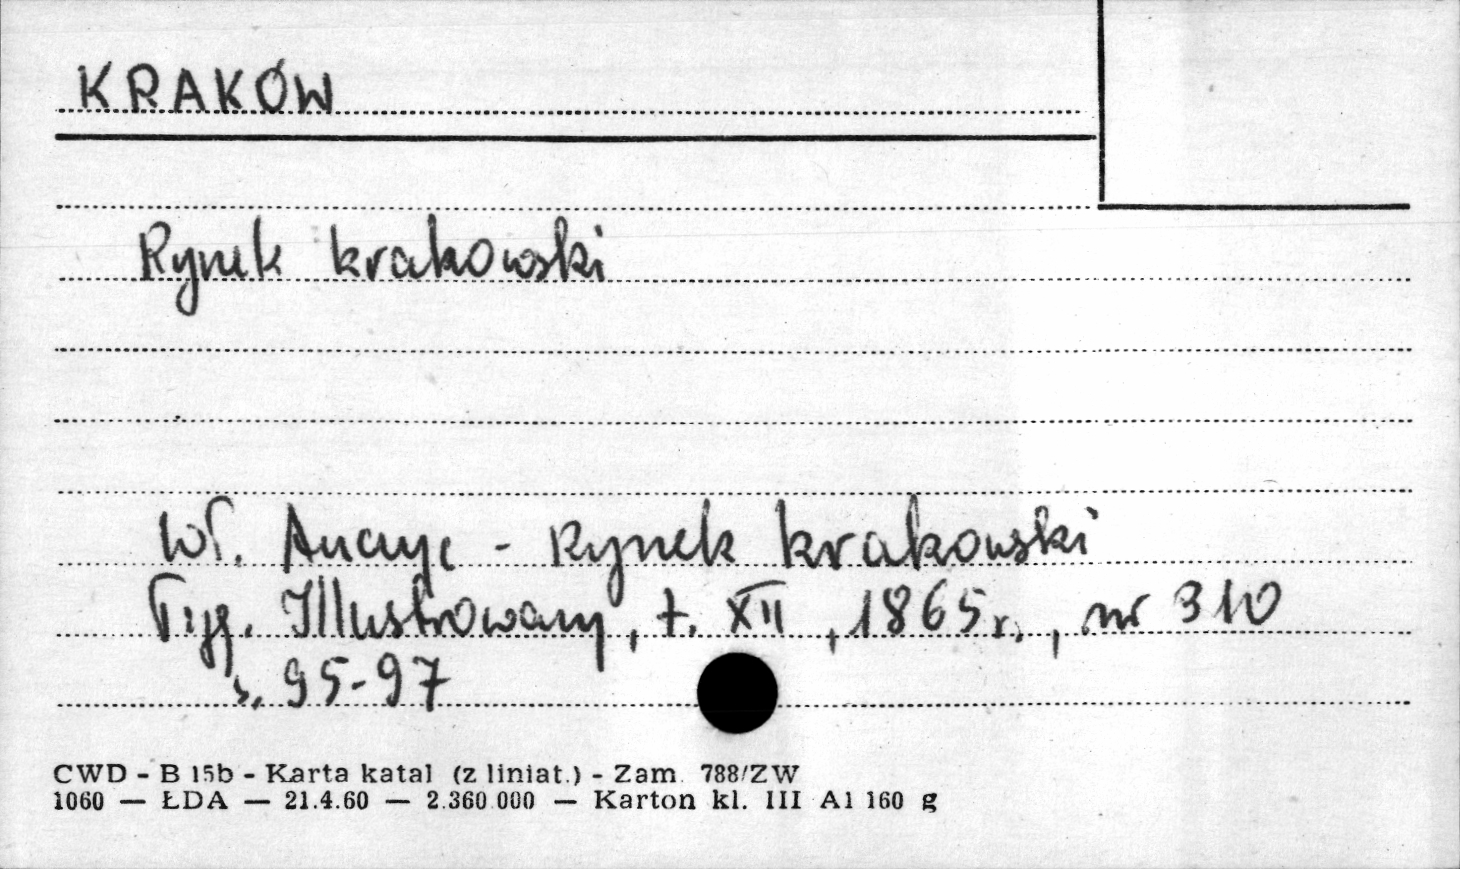 KRAKÓW
Rynek krakowski
Wł. Anczyc - Rynek krakowski
Tyg. Illustrowany, t. XII, 1865 r., nr 310
s. 95-97
CWD - B 15b - Karta katal (z liniat.) - Zam. 788/ZW
1060 — ŁDA — 21.4.60 — 2.360.000 — Karton kl. III A1 160 g